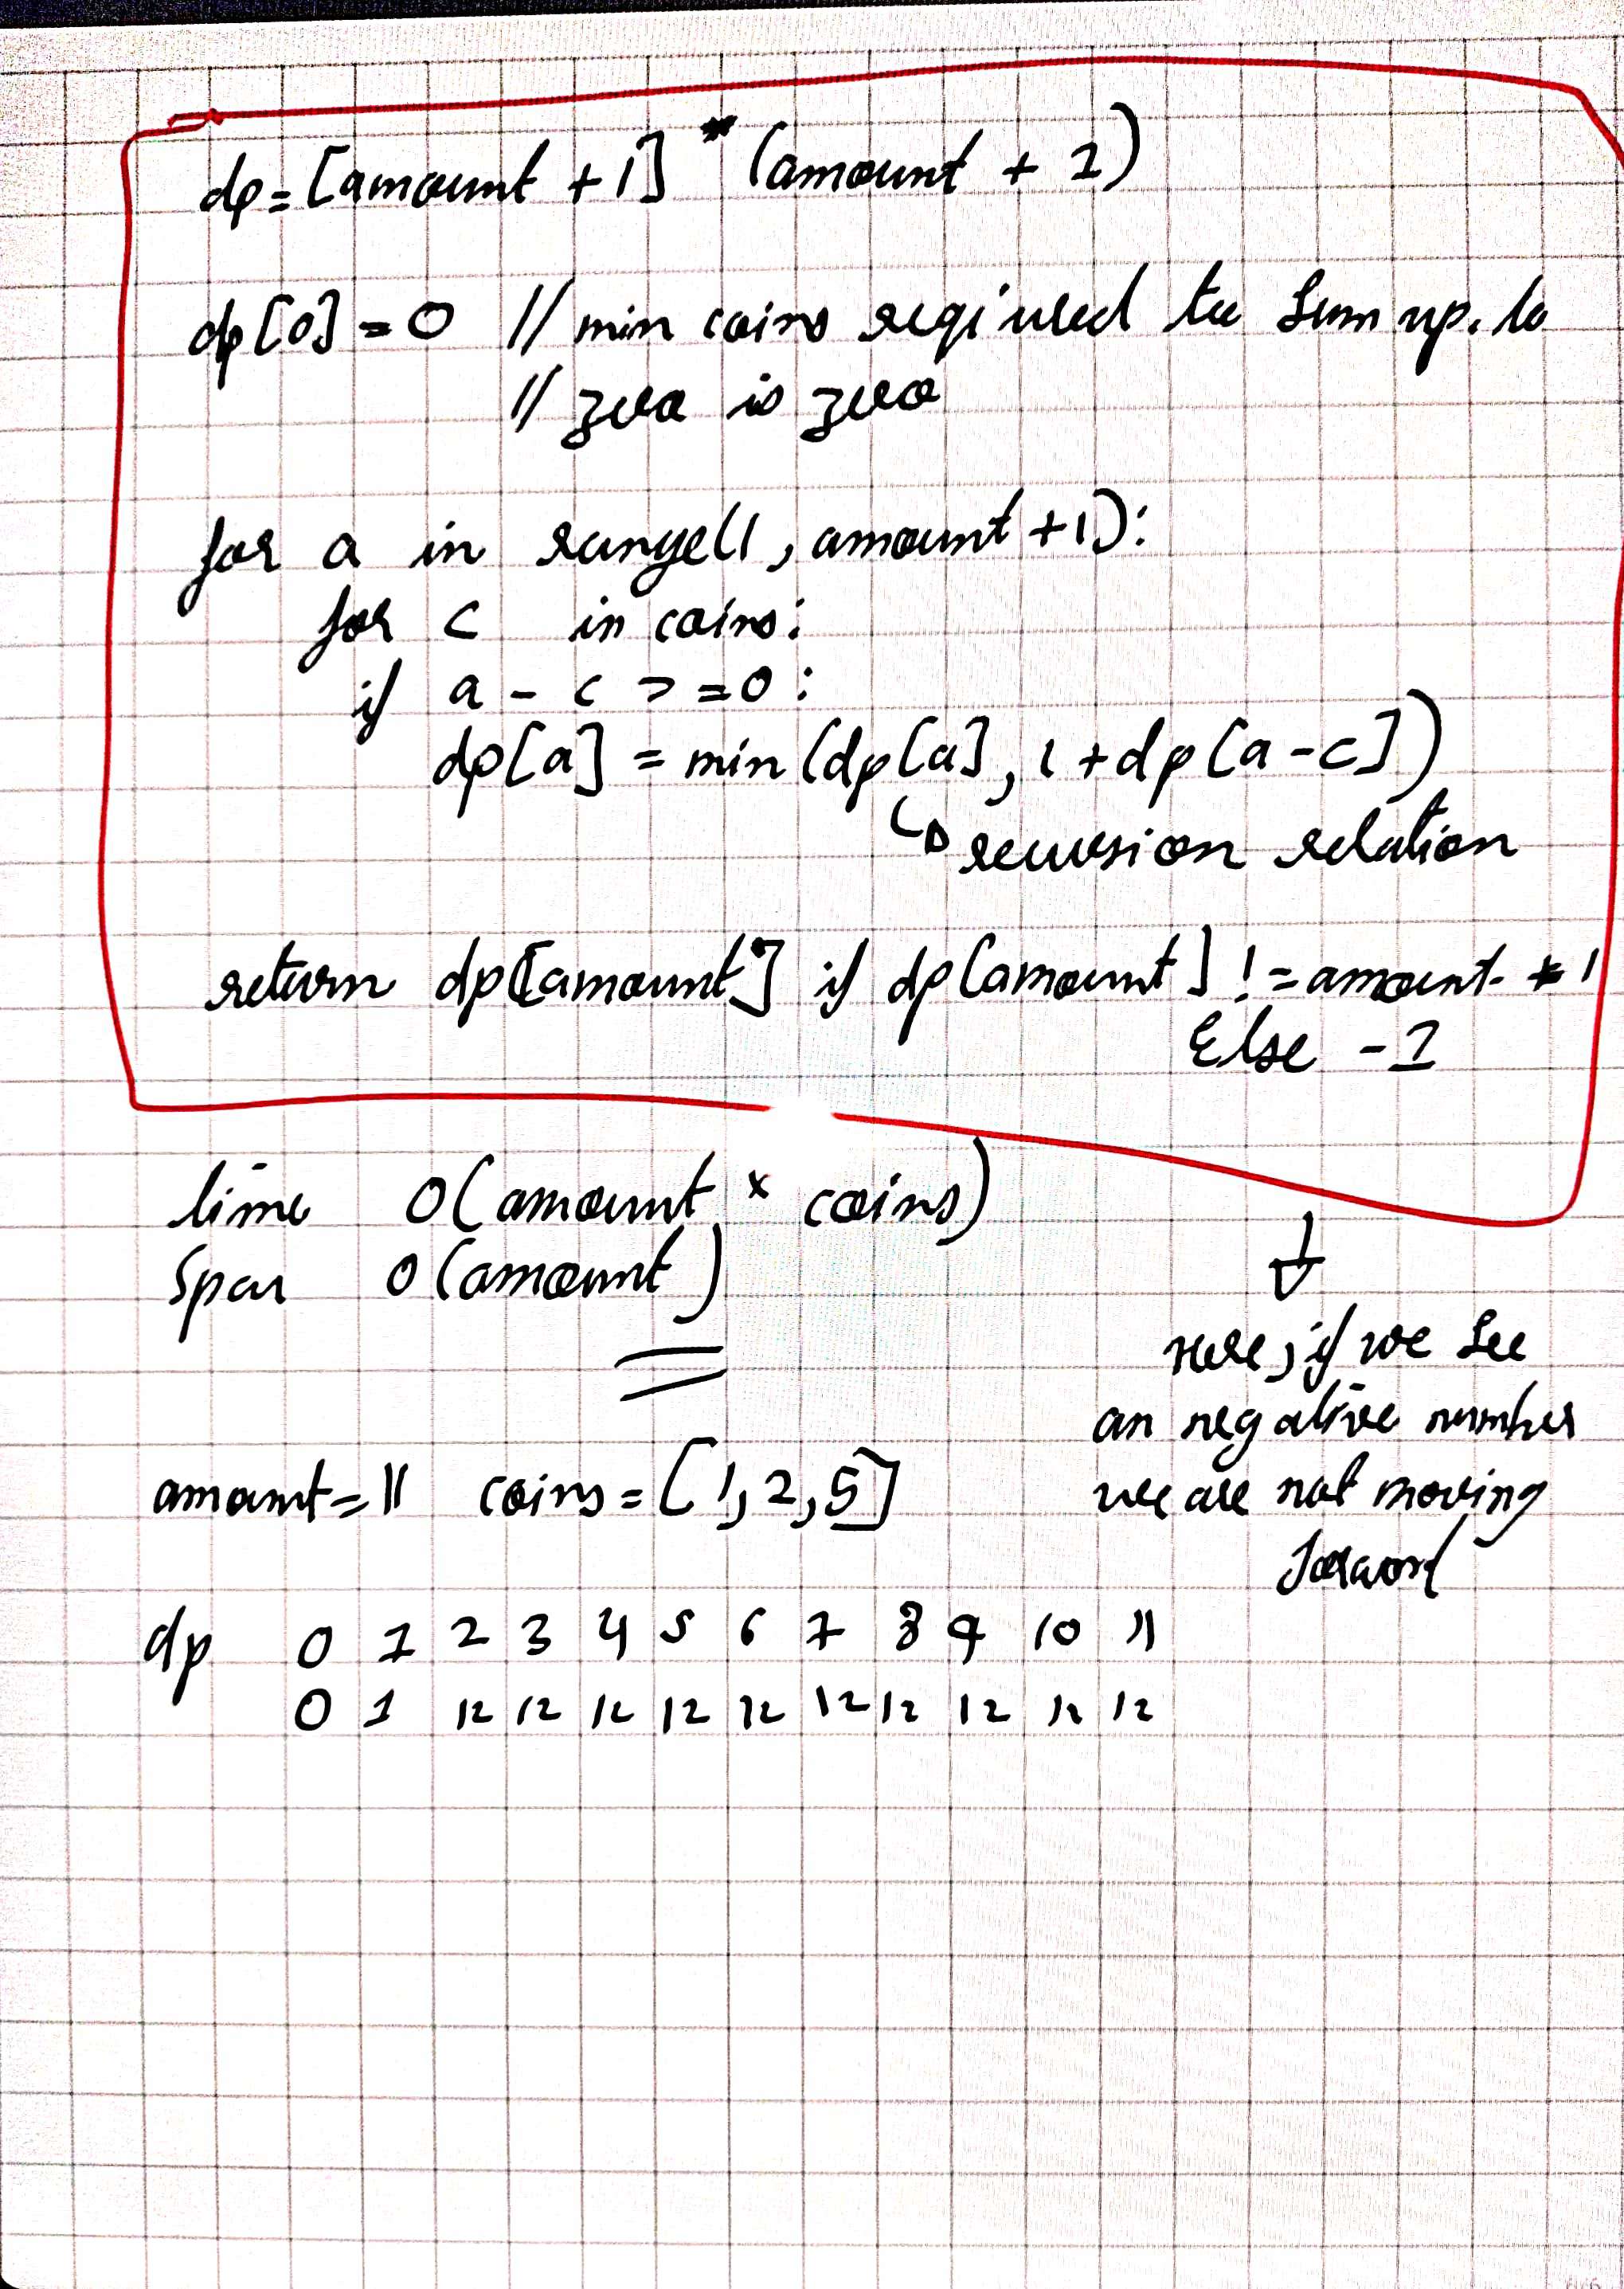 dp = [amount + 1] * (amount + 1)
dp[0] = 0 // min coins reqired to sum up. to
// zero is zero
for a in range(1, amount + 1):
for c in coins:
if a - c >= 0 :
dp[a] = min(dp[a], 1 + dp[a - c])
↳ recursion relation
return dp[amount] if dp[amount] != amount + 1
Else -1
time O(amount * coins)
Spac O(amount)
Here, if we see
an negative number
we are not moving
forword
amount = 11 coins = [1, 2, 5]
dp 0 1 2 3 4 5 6 7 8 9 10 11
0 1 12 12 12 12 12 12 12 12 12 12